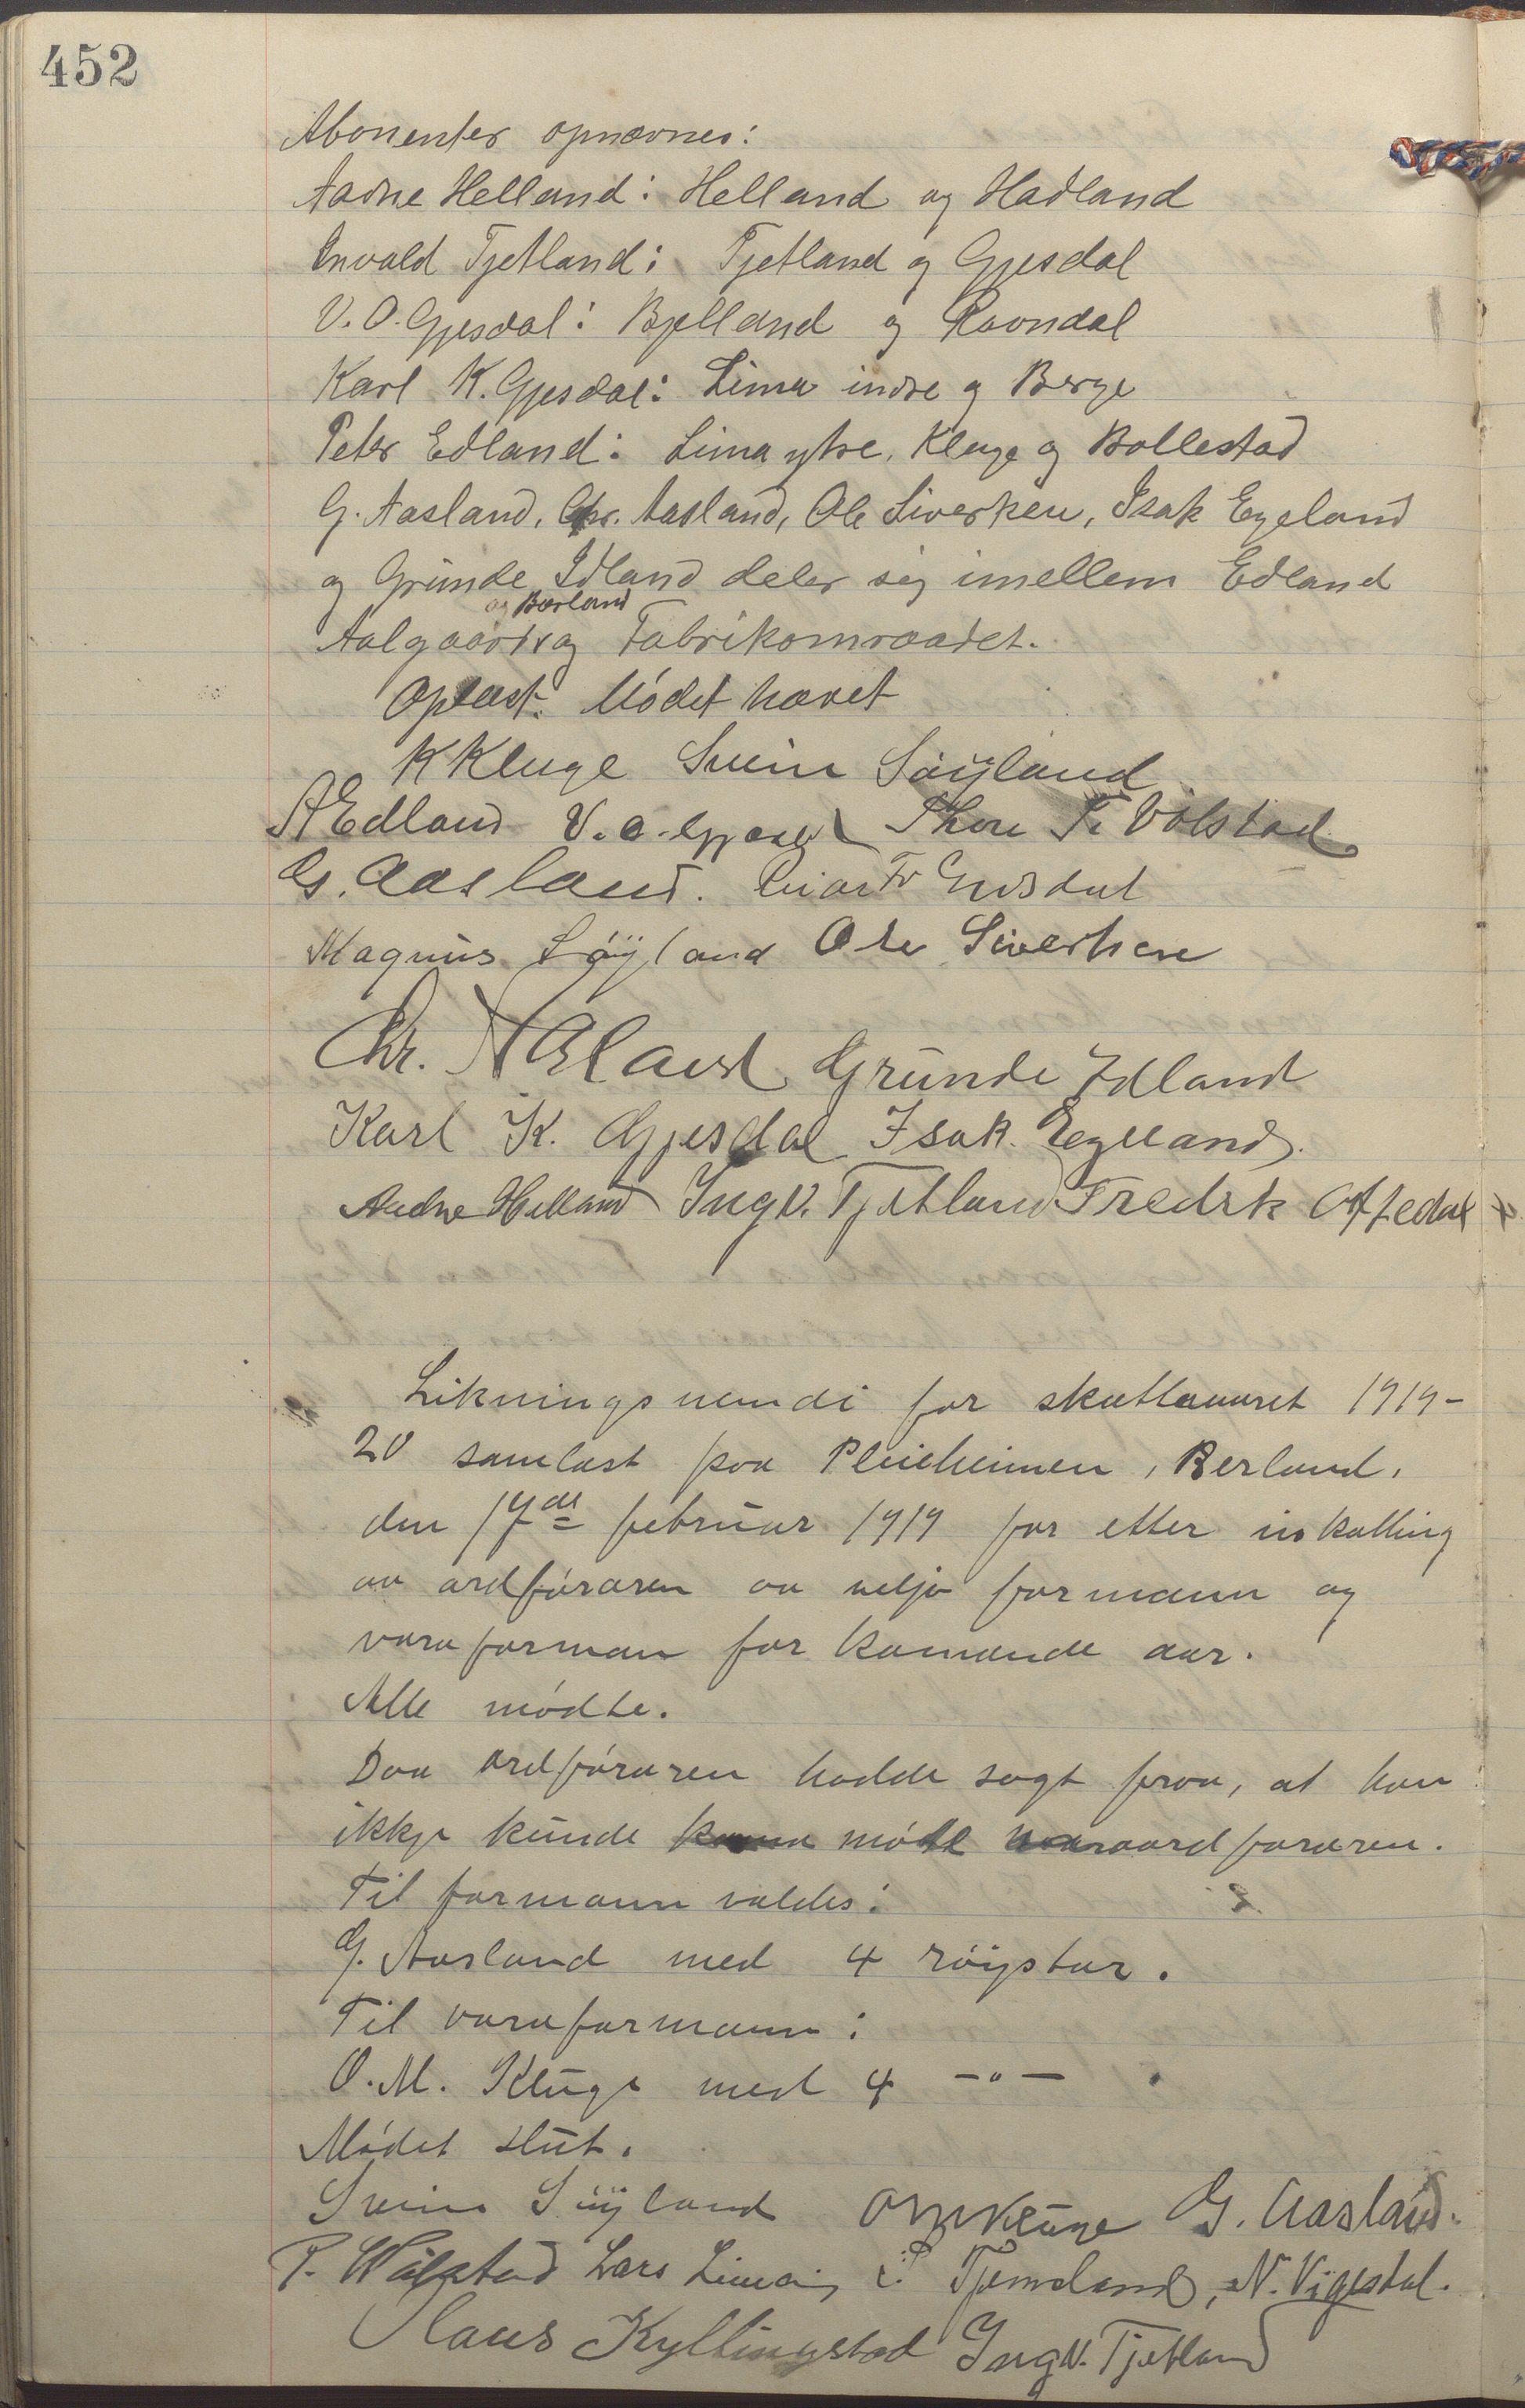 452
Abonenter opnævnes:
Aadne Helland: Helland og Hadland
Invald Tjetland: Tjetland og Gjesdal
V. O. Gjesdal: Bjelland og Ravndal
Karl K. Gjesdal: Lima indre og Berge
Peter Edland: Lima ytre, Kluge og Bollestad
G. Aasland, Chr. Aasland, Ole Siverhen, Isak Egeland
og Grunde Idland deler sig imellem Edland
og Bærland
Aalgaard og Fabrikomraadet.
Oplæst. Mødet hævet
K Kluge Svein Søyland
A Edland V. O. Gjesdal Thore T. Vølstad
G. Aasland. Einar Fr
Magnus Søyland Ole Siverhen
Chr. Asland Grunde Idland
Karl K. Gjesdal Isak Egeland.
Aadne Helland Ingv. Tjetland Fredrk Auedal
Likningsnemdi for skatteaaret 1919-
20 samlast paa Pleieheimen, Berland,
den 17de februar 1919 for etter inkalling
av ordføraren aa velja formann og
varaforman for komande aar.
Alle mødte.
Daa ordføraren hadde sagt fraa, at han
ikkje kunde møte varaordføraren.
Til formann valdes:
G. Aasland med 4 røystar.
Til varaformann:
O. M. Kluge med 4 -"-
Mødet slut.
Svein Søyland OM Kluge G. Aasland.
T. Wølstad Lars Lima Tjemsland, N. Vigesdal.
Claus Kyllingstad Ingv. Tjetland